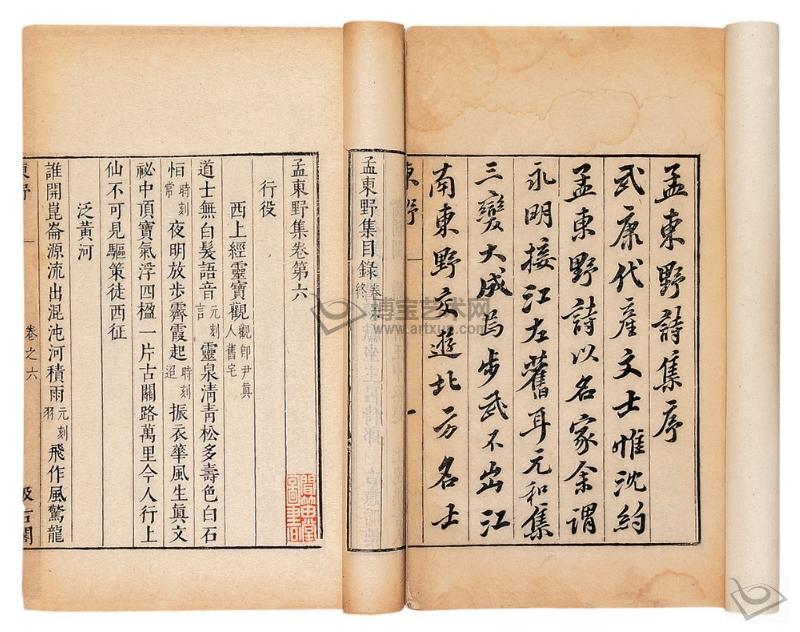 孟東野詩集序
武康代產文士惟沈約
孟東野詩以名家余謂
永明接江左舊耳元和集
三變大成焉步武不出江
南東野交遊北方名士
東野 一
孟東野集目錄卷終
孟東野集卷第六
行役
西上經靈寶觀觀即尹眞人舊宅
道士無白髮語音元刻言靈泉淸靑松多壽色白石
恒時刻常夜明放步霽霞起時刻迢振衣華風生眞文
祕中頂寶氣浮四楹一片古關路萬里今人行上
仙不可見驅策徒西征
泛黃河
誰開崑崙源流出混沌河積雨元刻羽飛作風驚龍
東野 卷之六 汲古閣
博宝艺术网
www.artxun.com